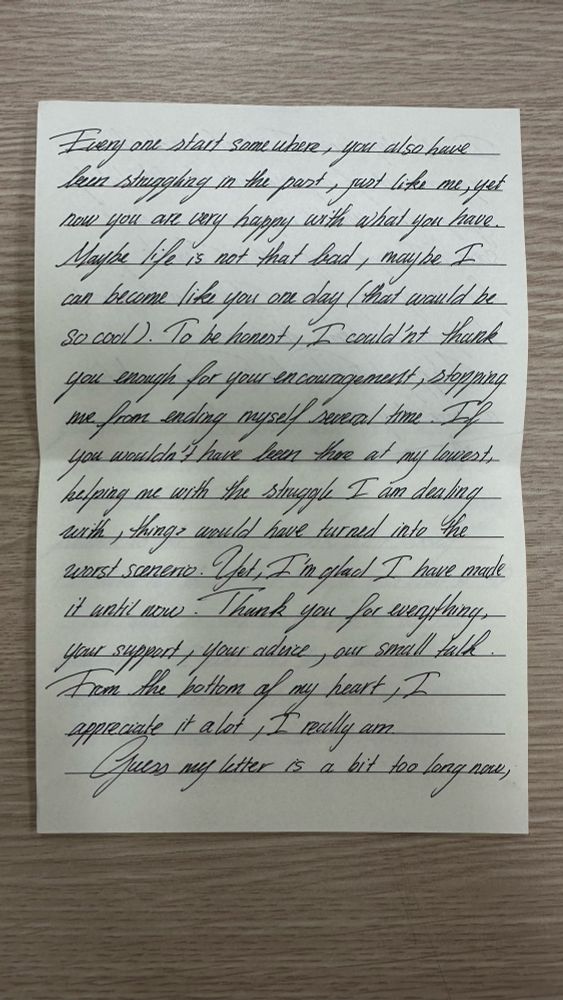 Every one start somewhere, you also have
been struggling in the past, just like me, yet
now you are very happy with what you have.
Maybe life is not that bad, maybe I
can become like you one day (that would be
so cool). To be honest, I could'nt thank
you enough for your encouragement, stopping
me from ending myself several time. If
you wouldn't have been there at my lowest,
helping me with the struggle I am dealing
with, things would have turned into the
worst scenerio. Yet, I'm glad I have made
it until now. Thank you for everything,
your support, your advice, our small talk.
From the bottom of my heart, I
appreciate it alot, I really am.
Guess my letter is a bit too long now,